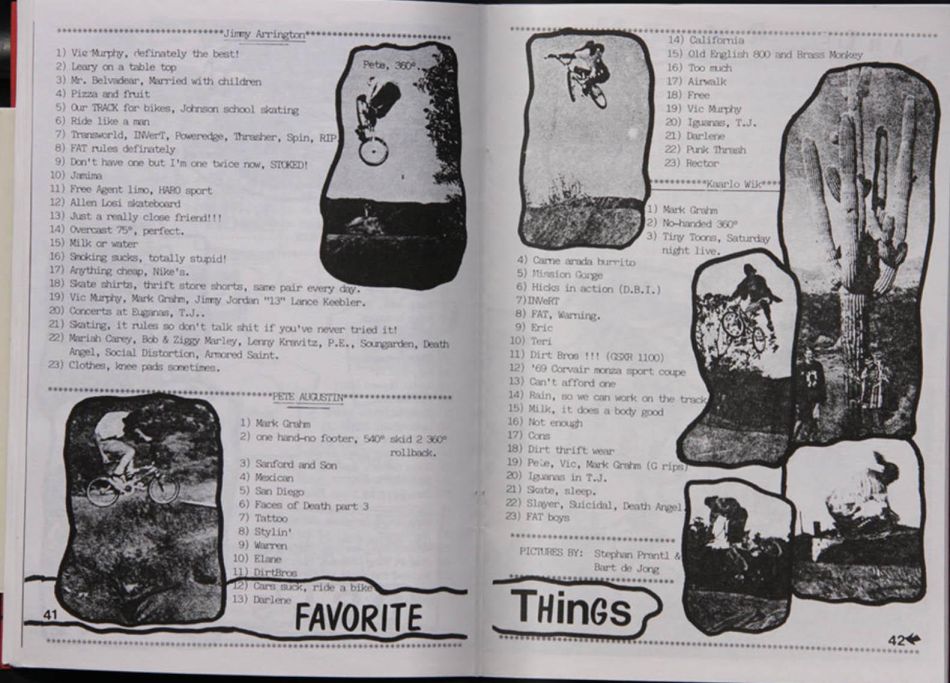 Jimmy Arrington
1) Vic Murphy, definately the best!
2) Leary on a table top
3) Mr. Belvadear, Married with children
4) Pizza and fruit
5) Our TRACK for bikes, Johnson school skating
6) Ride like a man
7) Transworld, INVerT, Poweredge, Thrasher, Spin, RIP
8) FAT rules definately
9) Don't have one but I'm one twice now, STOKED!
10) Jamima
11) Free Agent limo, HARO sport
12) Allen Losi skateboard
13) Just a really close friend!!!
14) Overcast 75°, perfect.
15) Milk or water
16) Smoking sucks, totally stupid!
17) Anything cheap, Nike's.
18) Skate shirts, thrift store shorts, same pair every day.
19) Vic Murphy, Mark Grahm, Jimmy Jordan "13" Lance Keebler.
20) Concerts at Euganas, T.J..
21) Skating, it rules so don't talk shit if you've never tried it!
22) Mariah Carey, Bob & Ziggy Marley, Lenny Kravitz, P.E., Soungarden, Death
Angel, Social Distortion, Armored Saint.
23) Clothes, knee pads sometimes.
Pete, 360°.
PETE AUGUSTIN
1) Mark Grahm
2) one hand-no footer, 540° skid 2 360°
rollback.
3) Sanford and Son
4) Mexican
5) San Diego
6) Faces of Death part 3
7) Tattoo
8) Stylin'
9) Warren
10) Elane
11) DirtBros
12) Cars suck, ride a bike
13) Darlene
FAVORITE
41
14) California
15) Old English 800 and Brass Monkey
16) Too much
17) Airwalk
18) Free
19) Vic Murphy
20) Iguanas, T.J.
21) Darlene
22) Punk Thrash
23) Rector
Kaarlo Wik
1) Mark Grahm
2) No-handed 360°
3) Tiny Toons, Saturday
night live.
4) Carne arada burrito
5) Mission Gorge
6) Hicks in action (D.B.I.)
7)INVeRT
8) FAT, Warning.
9) Eric
10) Teri
11) Dirt Bros !!! (GSXR 1100)
12) '69 Corvair monza sport coupe
13) Can't afford one
14) Rain, so we can work on the track
15) Milk, it does a body good
16) Not enough
17) Cons
18) Dirt thrift wear
19) Pete, Vic, Mark Grahm (G rips)
20) Iguanas in T.J.
21) Skate, sleep.
22) Slayer, Suicidal, Death Angel
23) FAT boys
PICTURES BY: Stephan Prantl &
Bart de Jong
THINGS
42